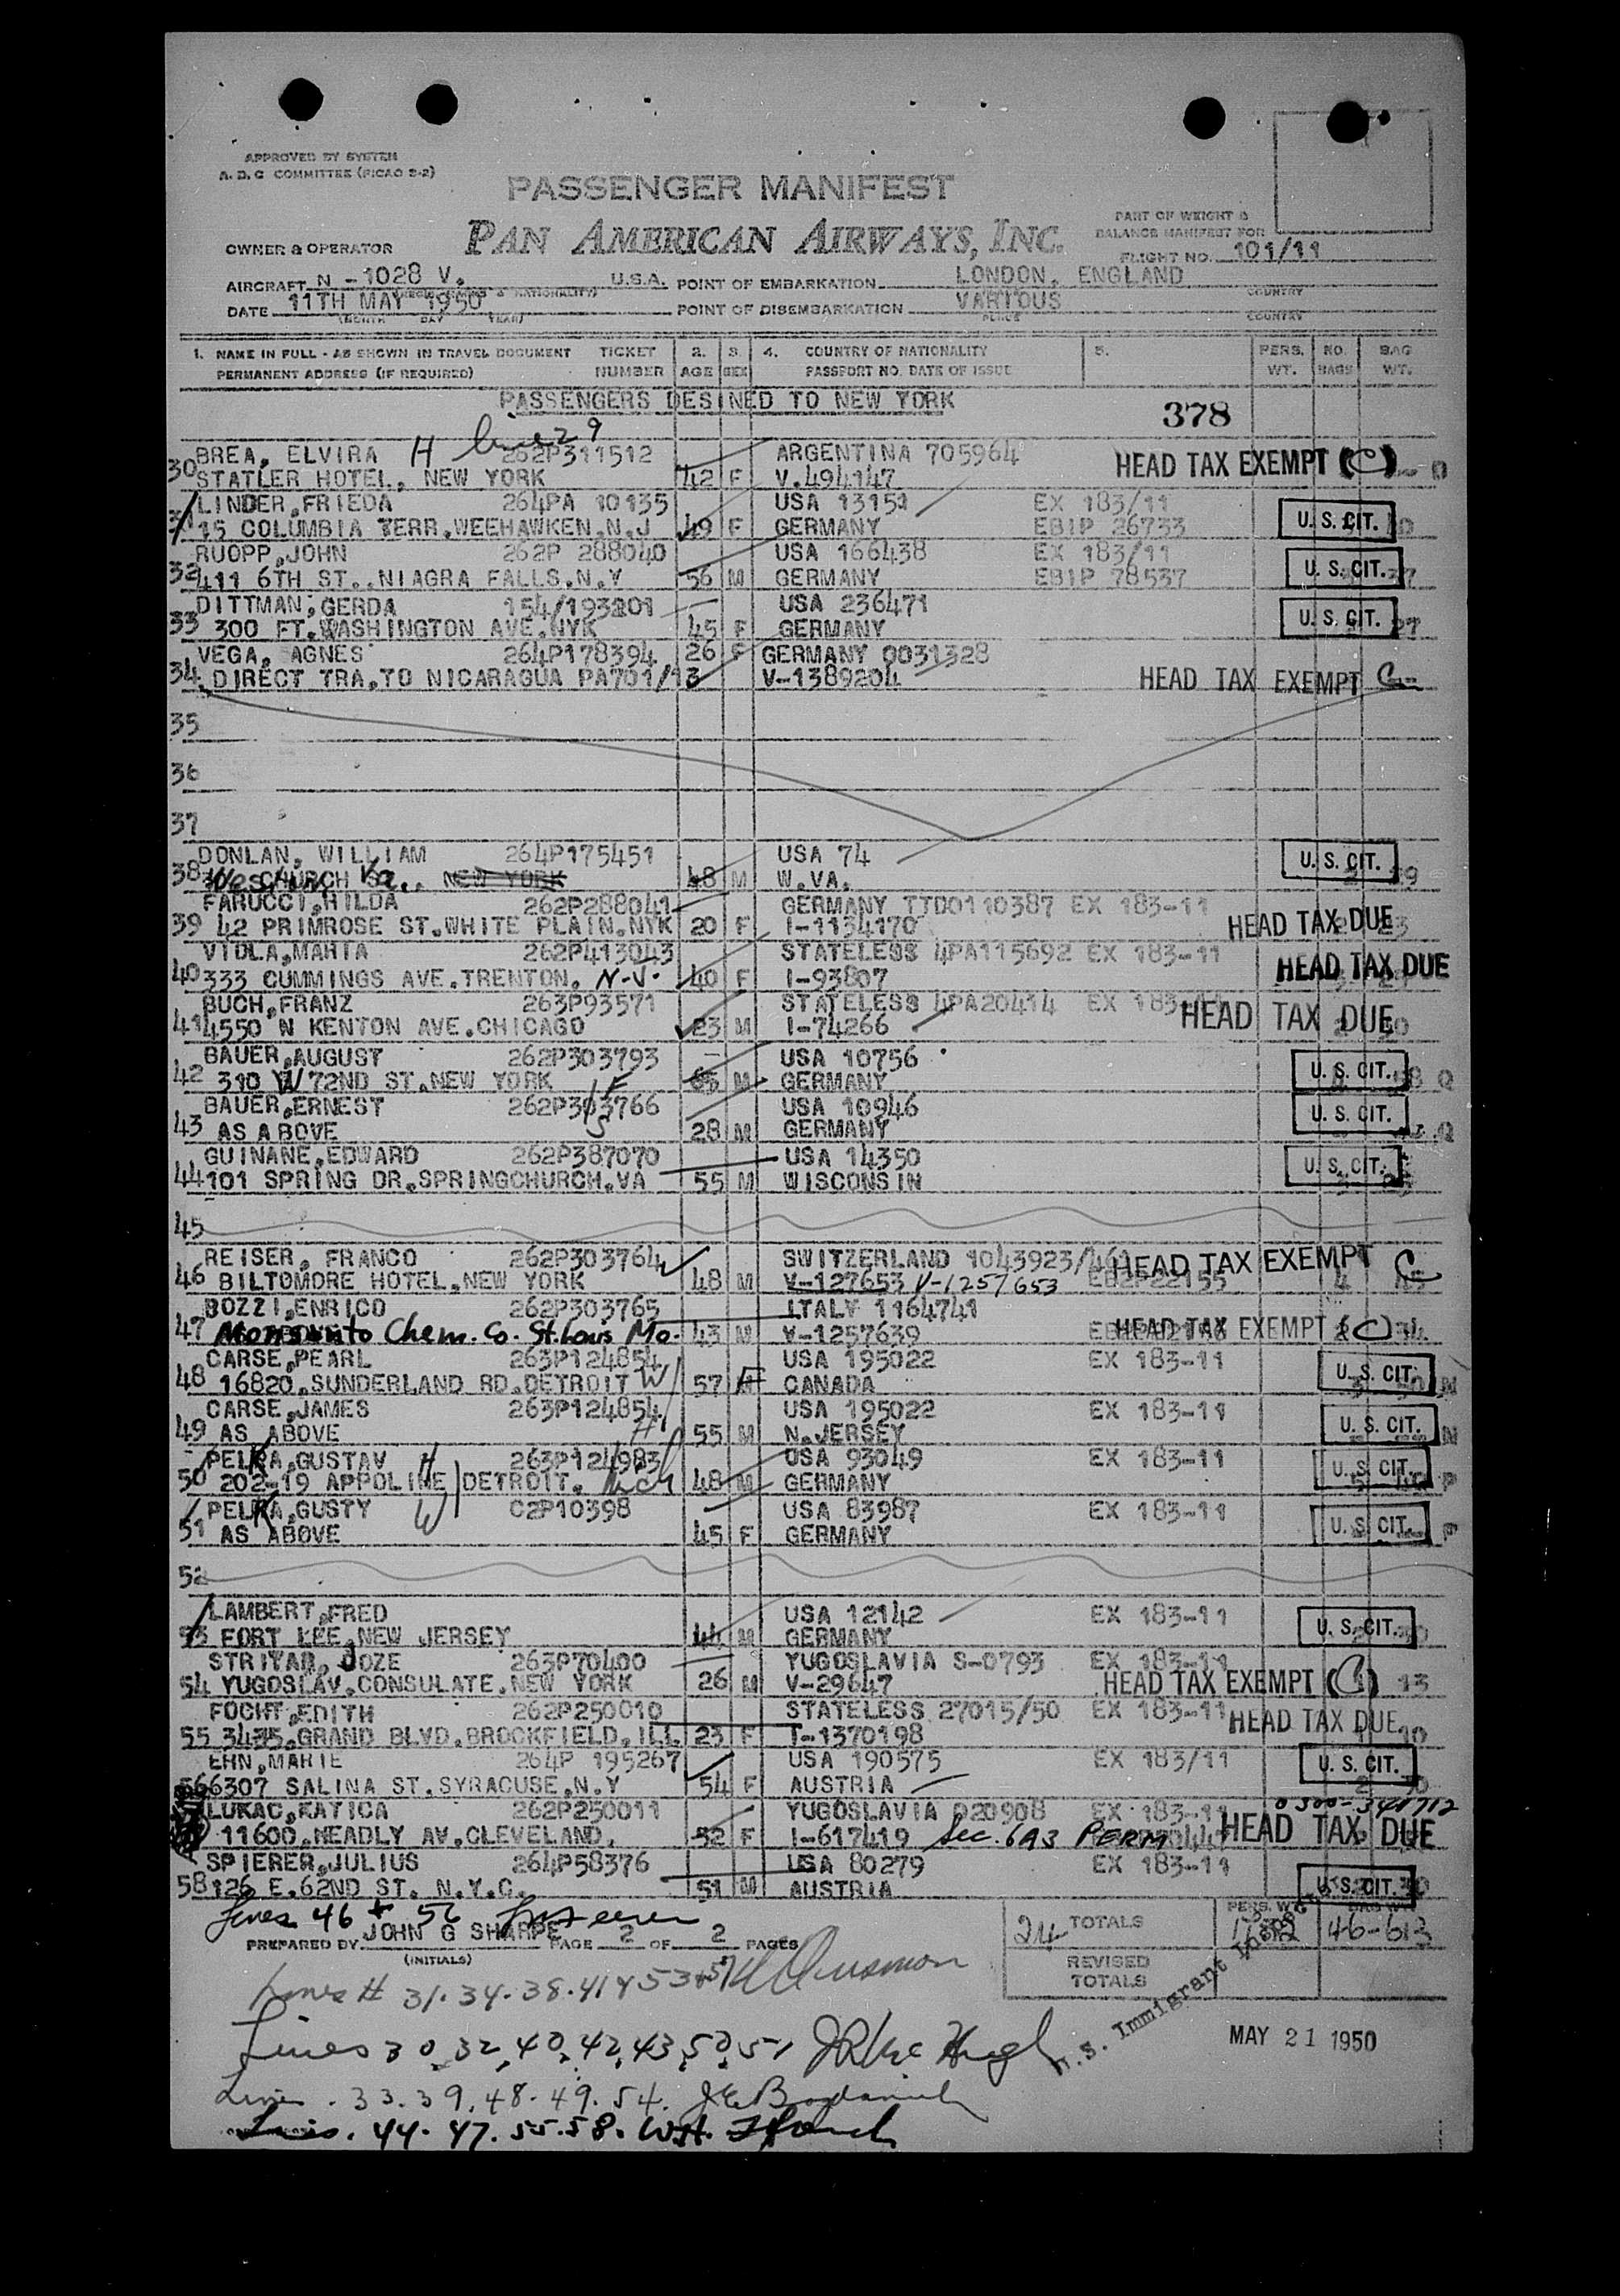 APPROVED BY SYSTEM
A. D. C COMMITTEE (PICAO 2-2)
PASSENGER MANIFEST
PAN AMERICAN AIRWAYS, INC.
PART OF WEIGHT &
BALANCE MANIFEST FOR
OWNER & OPERATOR
FLIGHT NO. 101/11
AIRCRAFT N - 1028 V. U.S.A. POINT OF EMBARKATION LONDON, ENGLAND
COUNTRY
DATE 11TH MAY 1950 POINT OF DISEMBARKATION VARIOUS
(MONTH DAY YEAR) PLACE COUNTRY
1. NAME IN FULL - AS SHOWN IN TRAVEL DOCUMENT TICKET 2. 3. 4. COUNTRY OF NATIONALITY 5. PERS. NO. BAG
PERMANENT ADDRESS (IF REQUIRED) NUMBER AGE SEX PASSPORT NO. DATE OF ISSUE WT. BAGS WT.
PASSENGERS DESINED TO NEW YORK 378
BREA, ELVIRA H line 29 262P311512 ARGENTINA 705964
30 STATLER HOTEL, NEW YORK 42 F V.494147 HEAD TAX EXEMPT (C)
LINDER,FRIEDA 264PA 10135 USA 13151 EX 183/11
31 15 COLUMBIA TERR.WEEHAWKEN.N.J 49 F GERMANY EBIP 26733 U. S. CIT.
RUOPP,JOHN 262P 288040 USA 166438 EX 183/11
32 411 6TH ST..NIAGRA FALLS.N.Y 56 M GERMANY EBIP 78537 U. S. CIT.
DITTMAN,GERDA 154/193201 USA 236471
33 300 FT.WASHINGTON AVE.NYK 45 F GERMANY U. S. CIT.
VEGA, AGNES 264P178394 26 F GERMANY 0031328
34 DIRECT TRA.TO NICARAGUA PA701/13 V-1389204 HEAD TAX EXEMPT C
35
36
37
DONLAN, WILLIAM 264P175451 USA 74
38 Weston, Va. CHURCH NEW YORK 48 M W.VA. U. S. CIT.
FARUCCI,HILDA 262P288041 GERMANY TTD0110387 EX 183-11
39 42 PRIMROSE ST.WHITE PLAIN.NYK 20 F I-1134170 HEAD TAX DUE
VIOLA,MARIA 262P413043 STATELESS 4PA115692 EX 183-11
40 333 CUMMINGS AVE.TRENTON. N.J. 40 F I-93807 HEAD TAX DUE
BUCH,FRANZ 263P93571 STATELESS 4PA20414 EX 183-11
41 4550 N KENTON AVE.CHICAGO 23 M I-74266 HEAD TAX DUE
BAUER,AUGUST 262P303793 USA 10756
42 310 W 72ND ST.NEW YORK F 65 M GERMANY U. S. CIT.
BAUER,ERNEST 262P303766 USA 10946
43 AS ABOVE S 28 M GERMANY U. S. CIT.
GUINANE,EDWARD 262P387070 USA 14350
44 101 SPRING DR.SPRINGCHURCH.VA 55 M WISCONSIN U. S. CIT.
45
REISER, FRANCO 262P303764 SWITZERLAND 1043923/461 HEAD TAX EXEMPT C
46 BILTOMORE HOTEL.NEW YORK 48 M V-127653 V-1257653 EB2P22155
BOZZI,ENRICO 262P303765 ITALY 1164741
47 Monsanto Chem. Co. St. Louis Mo. 43 M V-1257639 HEAD TAX EXEMPT (C)
CARSE,PEARL 263P124854 USA 195022 EX 183-11
48 16820.SUNDERLAND RD.DETROIT W 57 F CANADA U. S. CIT.
CARSE,JAMES 263P124854 USA 195022 EX 183-11
49 AS ABOVE H 55 M N.JERSEY U. S. CIT.
PELKA,GUSTAV H 263P124983 USA 93049 EX 183-11
50 202-19 APPOLINE DETROIT. Mich 48 M GERMANY U. S. CIT.
PELKA,GUSTY W C2P10398 USA 83987 EX 183-11
51 AS ABOVE 45 F GERMANY U. S. CIT.
52
LAMBERT,FRED USA 12142 EX 183-11
53 FORT LEE,NEW JERSEY 44 M GERMANY U. S. CIT.
STRIYAR, JOZE 263P70400 YUGOSLAVIA S-0793 EX 183-11
54 YUGOSLAV.CONSULATE.NEW YORK 26 M V-29647 HEAD TAX EXEMPT (C) 13
FOCHT,EDITH 262P250010 STATELESS 27015/50 EX 183-11
55 3435.GRAND BLVD.BROOKFIELD,ILL 23 F T-1370198 HEAD TAX DUE
EHN,MARIE 264P 195267 USA 190575 EX 183/11
56 6307 SALINA ST.SYRACUSE.N.Y 54 F AUSTRIA U. S. CIT.
LUKAC,KATICA 262P250011 YUGOSLAVIA 020908 EX 183-11 0300-341712
11600.NEADLY AV.CLEVELAND. 52 F I-617419 Sec. 6A3 PERM HEAD TAX DUE
SPIERER,JULIUS 264P58376 USA 80279 EX 183-11
58 126 E.62ND ST. N.Y.C. 51 M AUSTRIA U. S. CIT.
Lines 46 + 56
PREPARED BY JOHN G SHARPE PAGE 2 OF 2 PAGES
(INITIALS)
24 TOTALS PERS. WT. BAG WT. 46-613
REVISED
TOTALS
31. 34. 38. 41 + 53
U.S. Immigrant Inspector
Lines 30, 32, 40, 42, 43, 50, 51
MAY 21 1950
Lines. 33. 39. 48. 49. 54.
Lines. 44. 47. 55. 58.